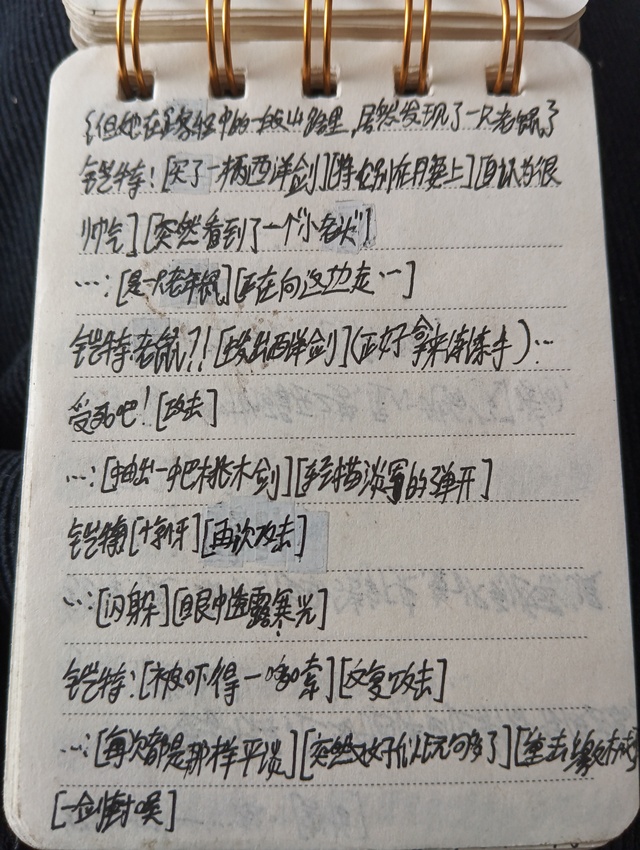 {但她在圣途中的一坡山路里,居然发现了一只老鼠了
铠特:[买了一柄西洋剑][特别在月要上][自认为很
帅气][突然看到了一个"小老头"]
…:[是一只老年鼠][正在向这边走…]
铠特:老鼠?![拔出西洋剑](正好拿来练练手)…
受死吧![攻击]
…:[抽出一把桃木剑][轻描淡写的弹开]
铠特:[惊讶][再次攻击]
…:[闪躲][眼中透露寒光]
铠特:[被吓得一哆嗦][反复攻击]
…:[每次都是那样平淡][突然又好似玩够了][重击
[一剑封喉]